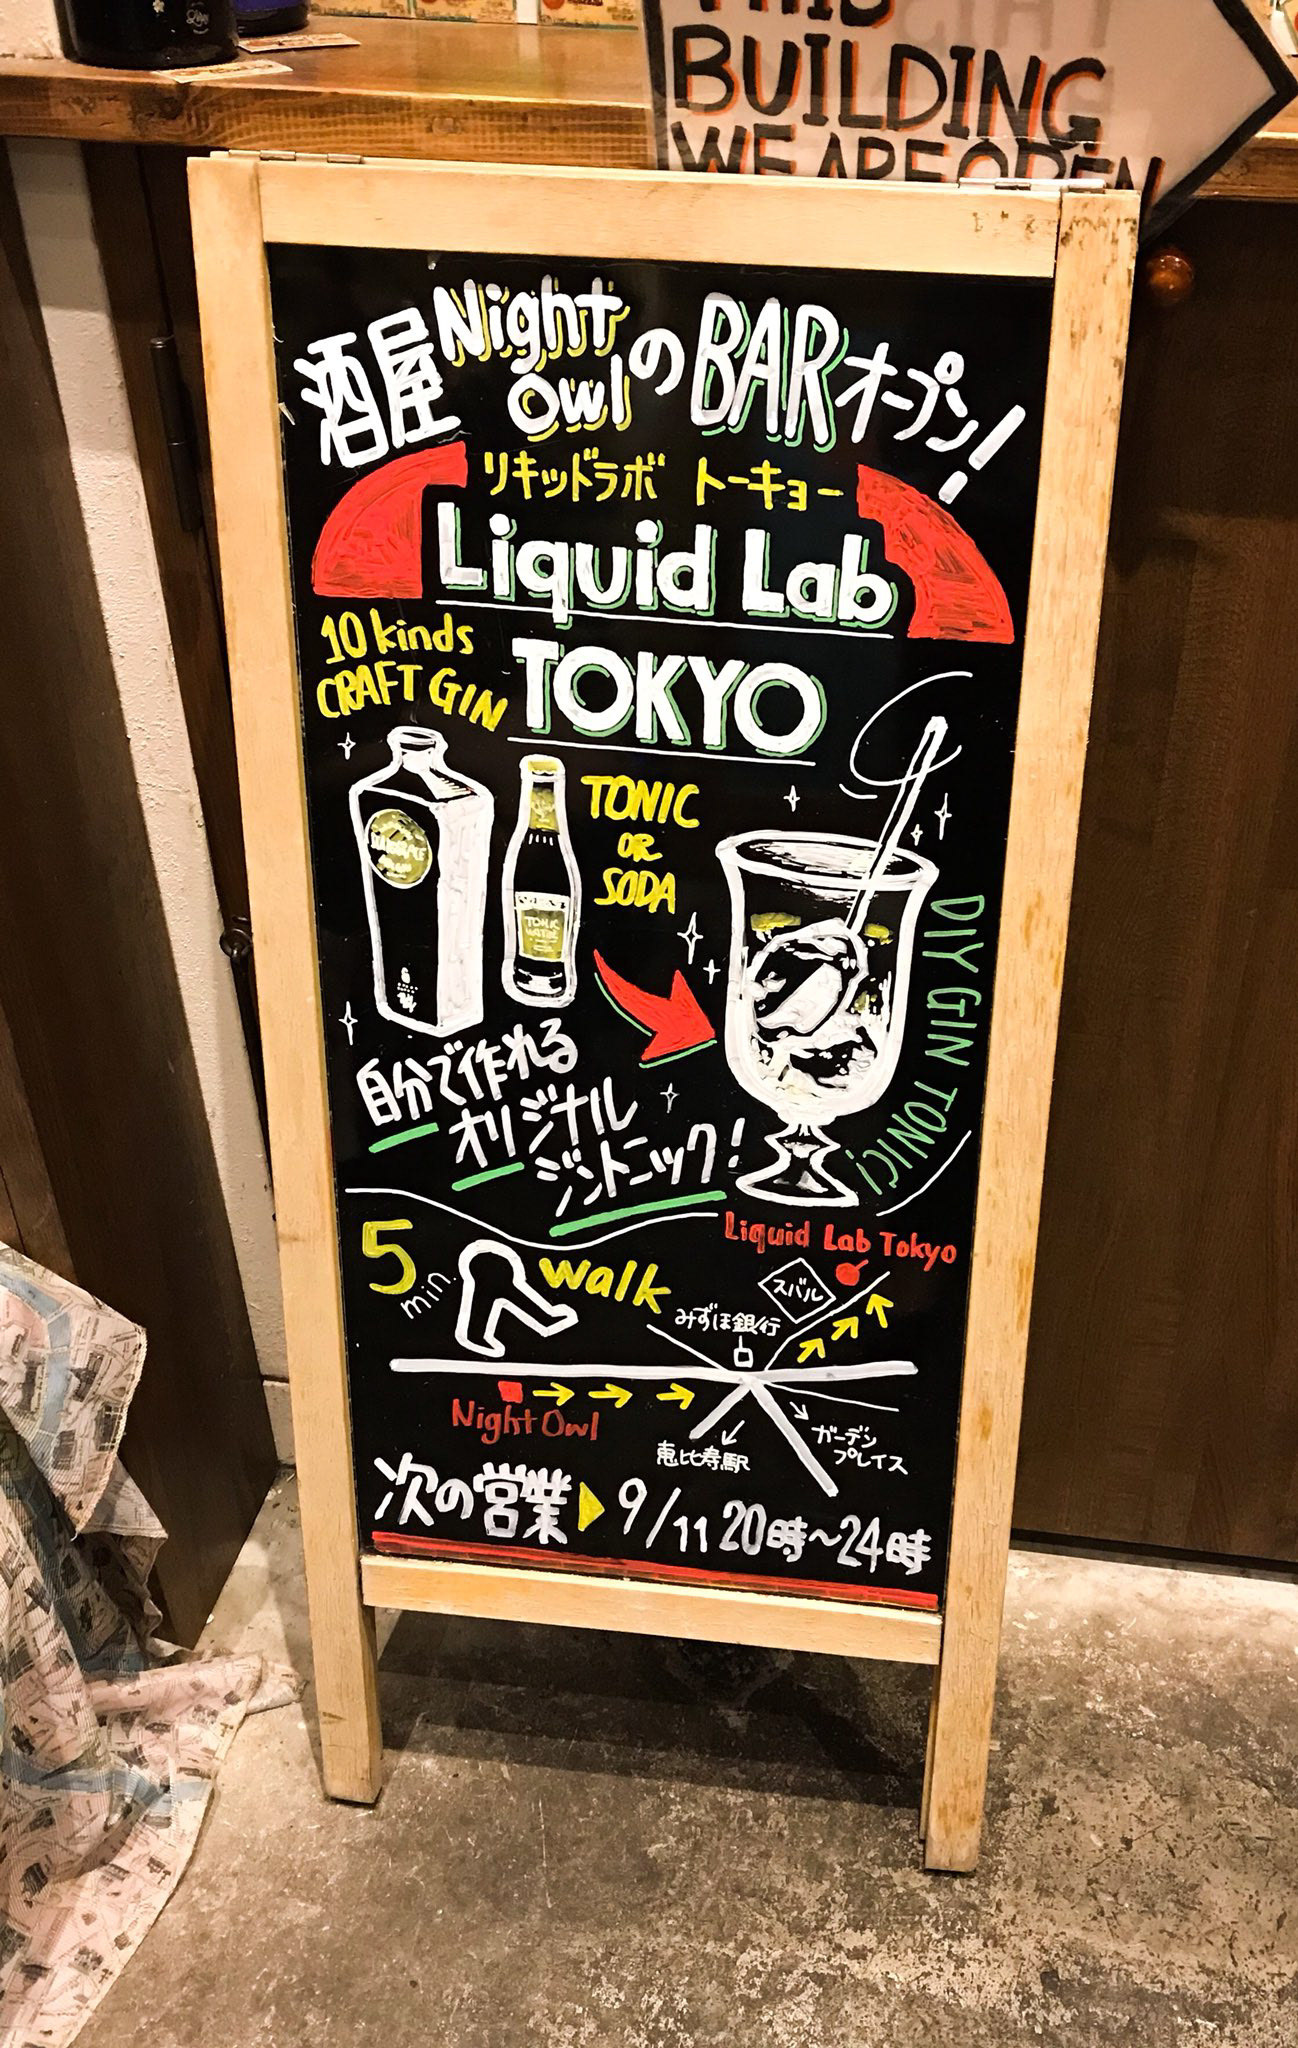 BUILDING
WE ARE OPEN
酒屋Night OwlのBARオープン!
リキッドラボ トーキョー
Liquid Lab
TOKYO
10 kinds
CRAFT GIN
TONIC
OR
SODA
TONIC
WATER
DIY GIN TONIC!
自分で作れる
オリジナル
ジントニック!
5 min. walk
Liquid Lab Tokyo
スバル
みずほ銀行
Night Owl
恵比寿駅
ガーデン
プレイス
次の営業▶9/11 20時~24時